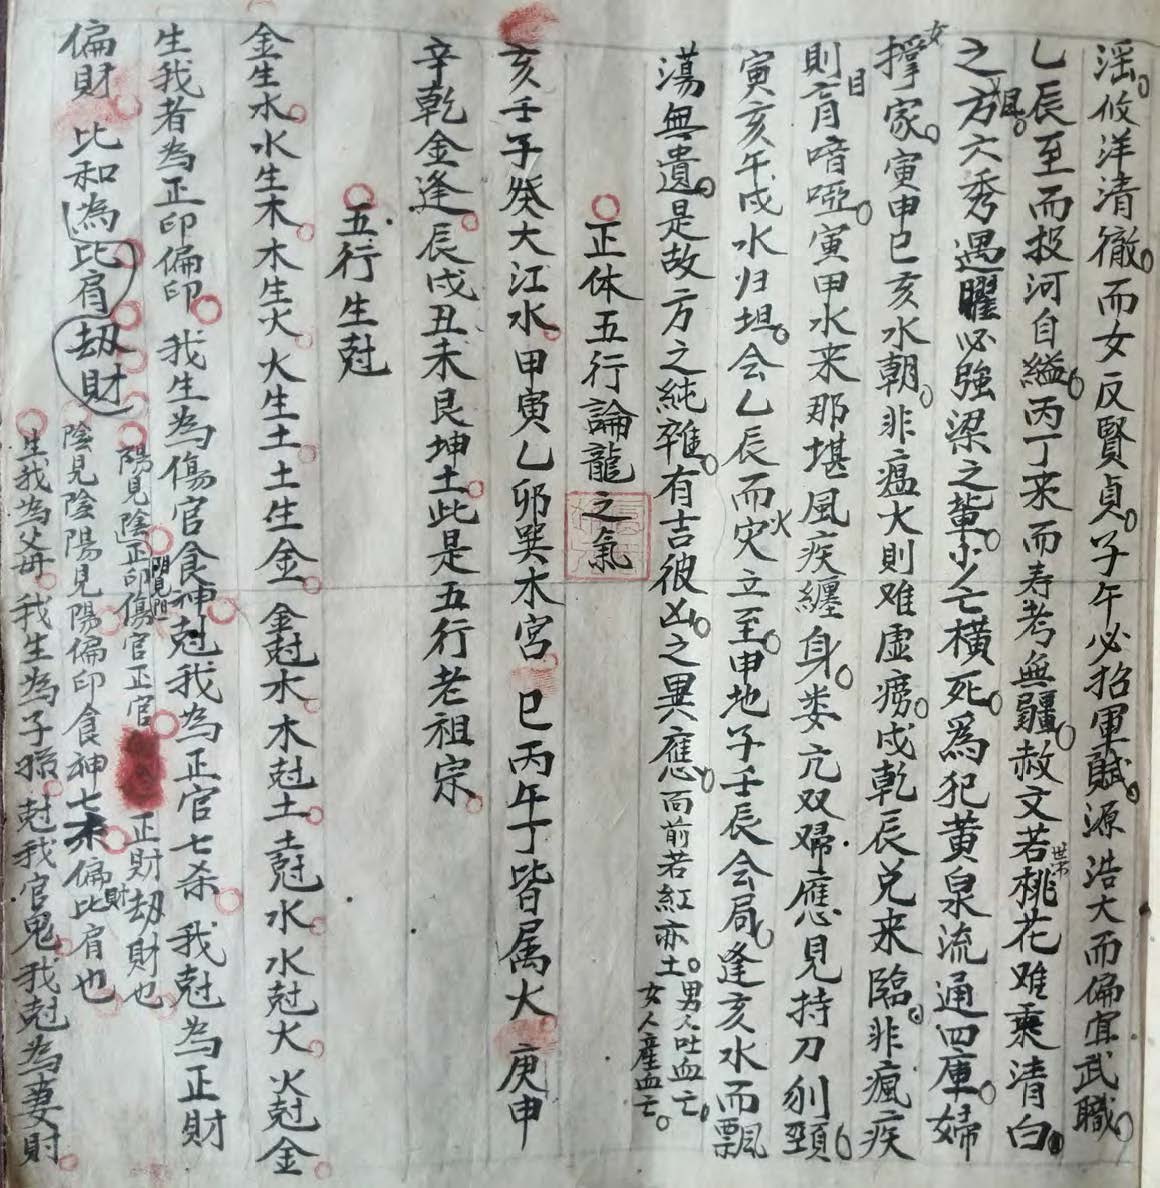 淫。攸洋清徹。而女反賢貞。子午必招軍賊。源浩大而偏宜武職。
乙辰至而投河自縊。丙丁来而寿考無疆。赦文若桃花难乘清白。
之方六秀遇曜必強梁之輩。少亡横死。爲犯黄泉流通四庫。婦女
撑家。寅申巳亥水朝。非瘟火則难虚痨。戌乾辰兌来臨。非瘋疾
則盲瘖啞。寅甲水来那堪風疾纏身。娄亢双婦應見持刀刎頸。
寅亥午戌水归坦。会乙辰而火灾立至。申地子壬辰会局。逢亥水而飄
蕩無遺。是故方之純雜。有吉彼凶。之異應。面前若紅亦土。男人吐血亡。女人産血亡。
正体五行論龍之氣
亥壬子癸大江水甲寅乙卯巽木宫 巳丙午丁皆属火 庚申
辛乾金逢。辰戌丑未艮坤土。此是五行老祖宗。
五行生尅
金生水。水生木。木生火。火生土。土生金。金尅木。木尅土。土尅水。水尅火。火尅金
生我者為正印偏印。我生為傷官食神。尅我為正官七杀。我尅為正財
偏財 比和為比肩劫財
陽見陰陰見陽正印傷官正官 正財劫財也
陰見陰陽見陽偏印食神七杀偏財比肩也
生我為父母。我生為子孫。尅我官鬼。我尅為妻財。